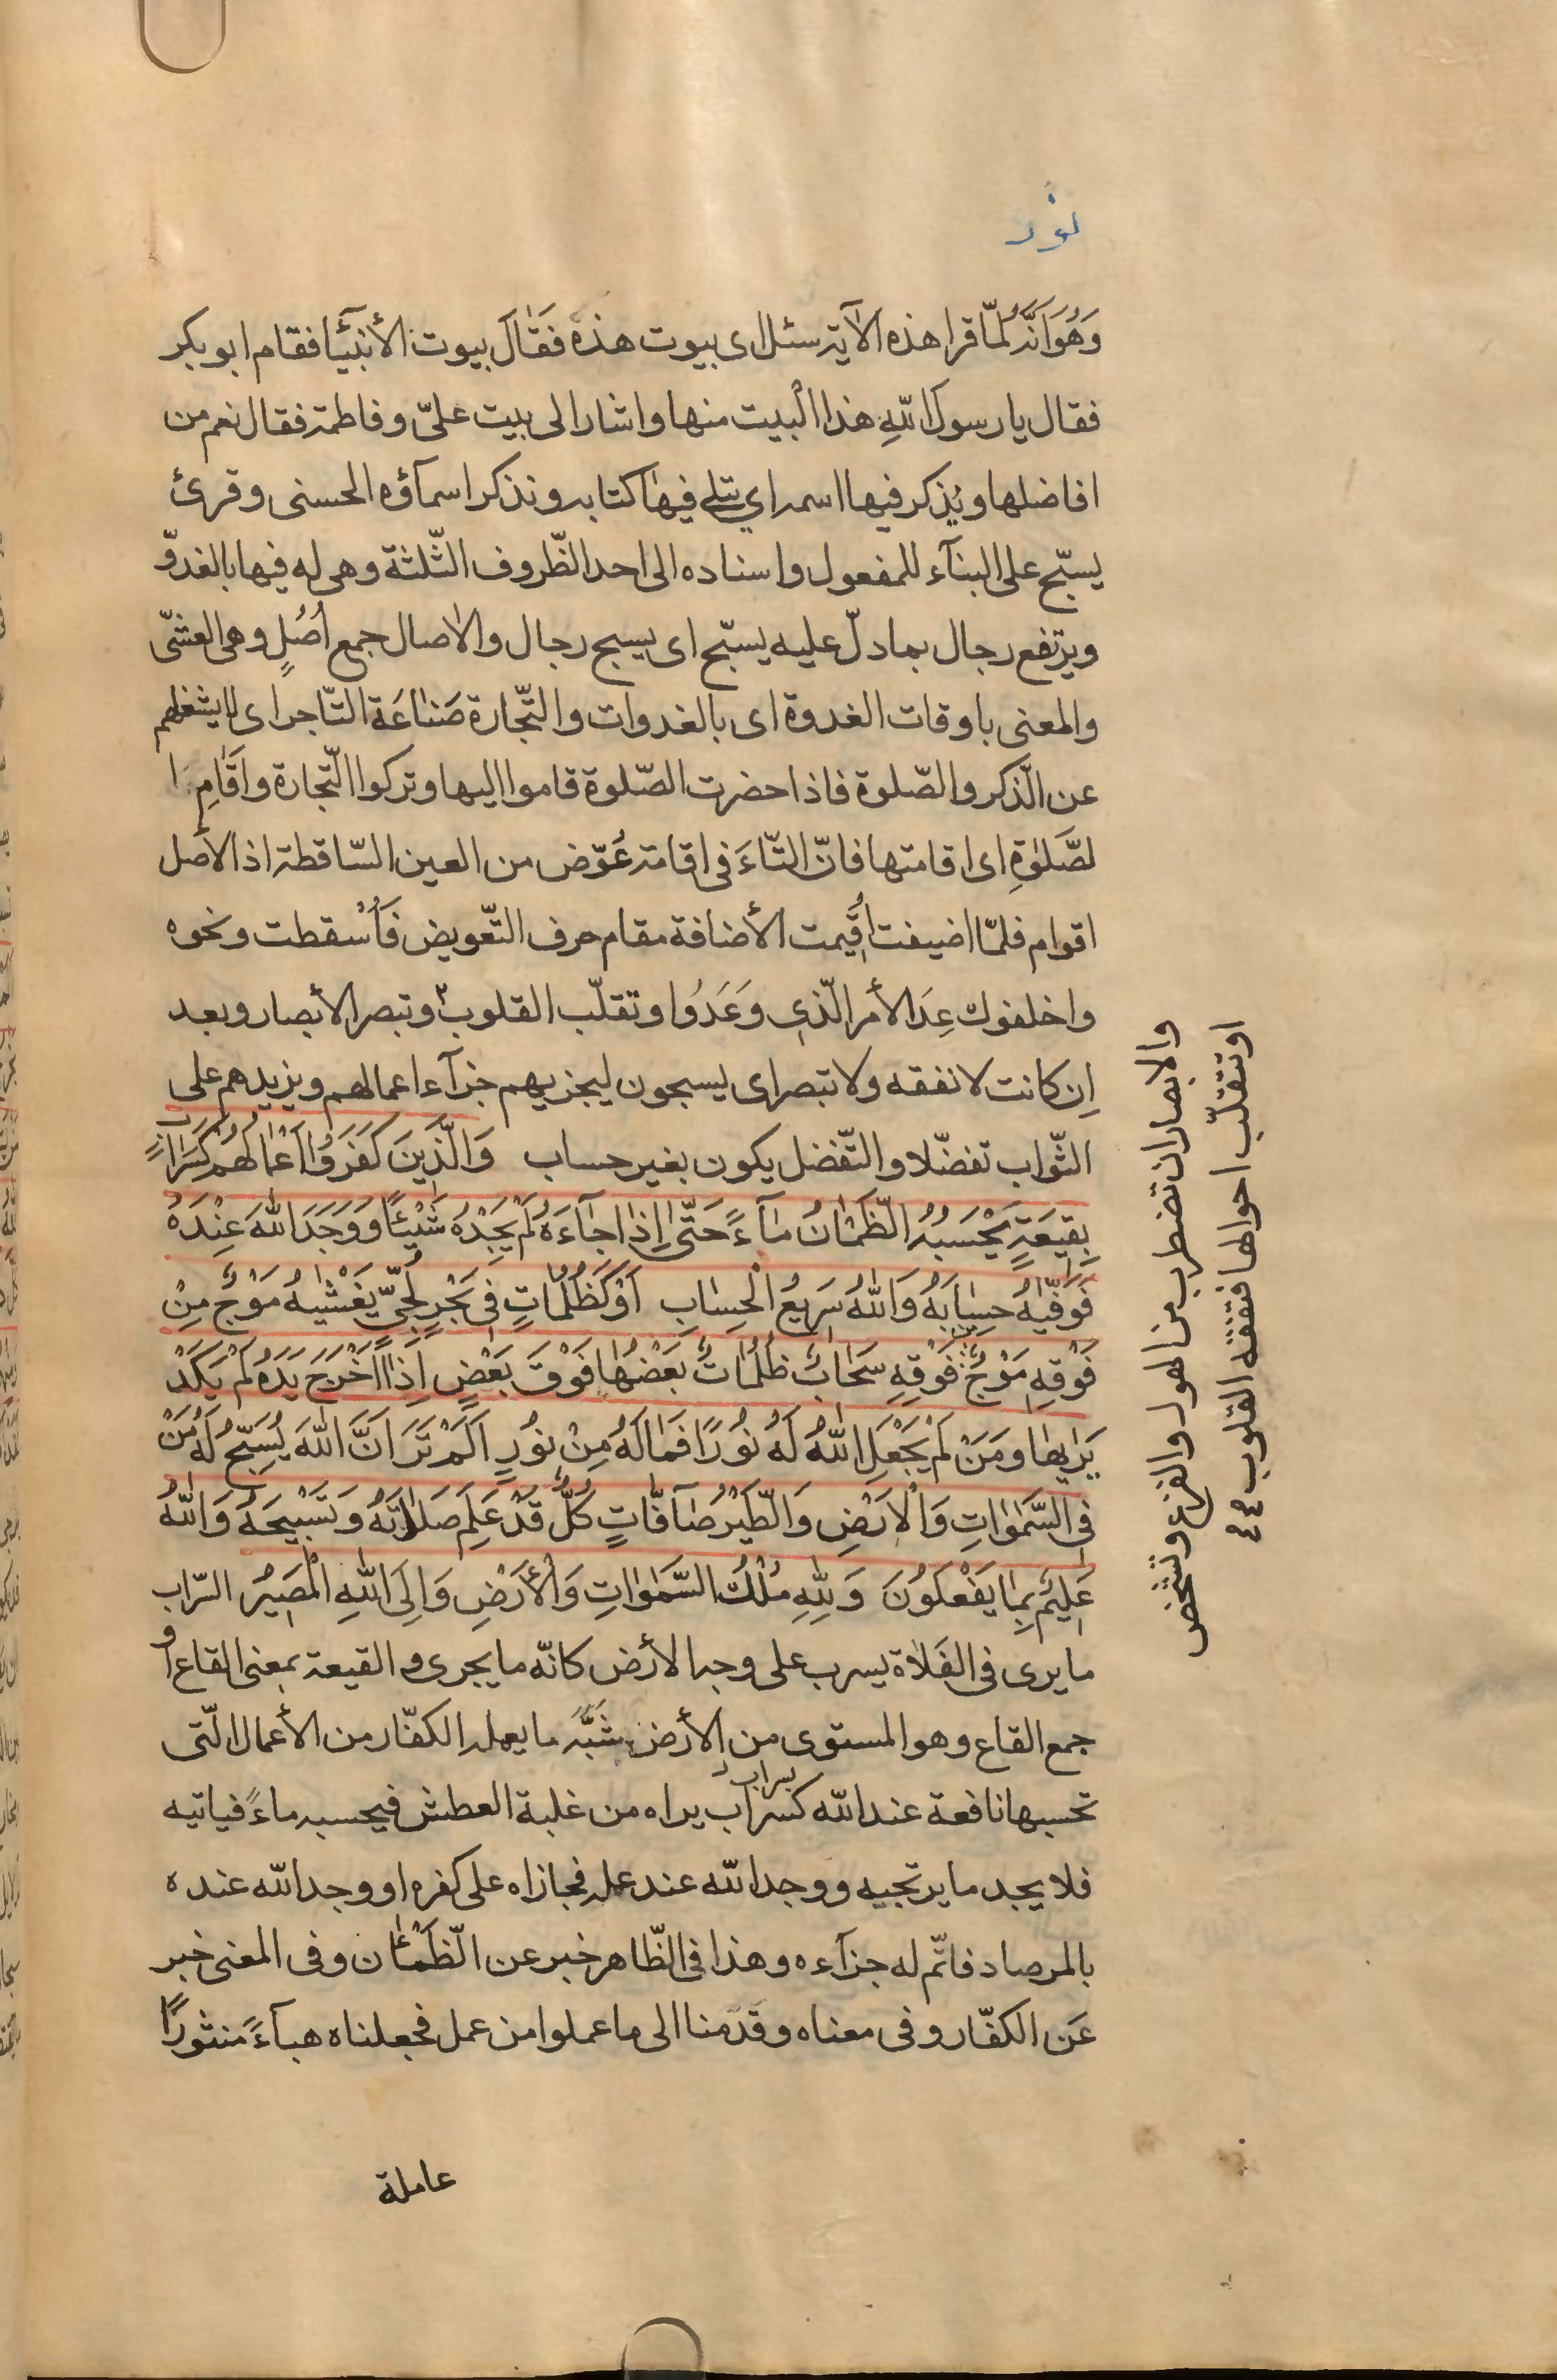 نور
وَهُوَ اَنَّهُ لمّا قرا هذه الآية سئل اى بيوت هذه فَقَالَ بيوت الأنبيٓاء فقام ابو بكر
فقال يا رسول اللّهِ هذا البيت منها واشار الى بيت علىّ وفاطمة فقال نعم من
افاضلها ويُذكر فيها اسمه اي يتلى فيها كتابه ونذكر اسمآؤه الحسنى وقرئ
يسبّح على البنآء للمفعول واسناده الى احد الظّروف الثّلثة وهى له فيها بالغدوّ
ويرتفع رجال بما دلّ عليه يسبّح اى يسبح رجال والاصال جمع اُصُلٍ وهى العشىّ
والمعنى باوقات الغدوة اى بالغدوات والتّجارة صَناعَة التّاجر اى لا يشغلهم
عن الذّكر والصّلوة فاذا حضرت الصّلوة قاموا اليها وتركوا التّجارة واَقَامِ ا
لصَّلوٰةِ اى اقامتها فانّ التّاءَ فى اقامة عُوّض من العين السّاقطة اذ الأصل
اقوام فلمّا اضيفت اُقيمت الأضافة مقام حرف التّعويض فَاُسْقطت ونحوه
واخلفوك عِدَ الأمر الّذى وَعَدُوا وتقلّب القلوب وتبصر الأبصار وبعد
اِن كانت لا نفقه ولا تبصر اى يسبحون ليجزيهم جزآء اعمالهم ويزيدهم على
الثّواب تفضّلا والتّفضل يكون بغير حساب وَالَّذِينَ كَفَرَوُا اَعْمالُهُمْ كَسَرابٍ
بِقيعَةٍ يَحْسَبُهُ الظَّمْانُ مآءً حَتّٰى اِذا جآءَهُ لَمْ يَجِدْهُ شَيْئًا وَوَجَدَ اللّٰهَ عِنْدَهُ
فَوَفّيٰهُ حِسابَهُ وَاللّٰهُ سَرِيعُ الْحِسابِ اَوْ كَظُلُماتٍ فى بَحْرٍ لُجّىٍّ يَغْشٰيهُ مَوْجٌ مِنْ
فَوْقِهِ مَوْجٌ مِنْ فَوْقِهِ سَحابٌ ظُلُماتٌ بَعْضُها فَوْقَ بَعْضٍ اِذا اَخْرَجَ يَدَهُ لَمْ يَكَدْ
يَرٰيها وَمَنْ لَمْ يَجْعَلِ اللّٰهُ لَهُ نُورًا فَما لَهُ مِنْ نُورٍ اَلَمْ تَرَ اَنَّ اللّٰهَ يُسَبِّحُ لَهُ مَنْ
فِى السَّمٰوٰاتِ وَالْاَرْضِ وَالطَّيْرُ صآفّاتٍ كُلٌّ قَدْ عَلِمَ صَلاتَهُ وَتَسْبيحَهُ وَاللّٰهُ
عَليمٌ بِما يَفْعَلوُنَ وَلِلّٰهِ مُلْكُ السَّمٰوٰاتِ وَالْأَرْضِ وَاِلَى اللّٰهِ الْمَصيرُ السّراب
ما يرى فى الفَلاة يسرب على وجه الأرض كانّه ما يجرى و القيعة بمعنى القاع او
جمع القاع وهو المستوى من الأرض شَبَّهَ ما يعمله الكفّار من الأعمال الّتى
تحسبها نافعة عند اللّه كسراب يراه من غلبة العطش فيحسبه ماءً فياتيه
سراب
فلا يجد ما يرتجيه ووجد اللّه عند عمله فجازاه على كفره او وجد اللّه عنده
بالمرصاد فاتّم له جزآءه وهذا فى الظّاهر خبر عن الظّمْئان وفى المعنى خبر
عَن الكفّار وفى معناه وقَدمنا الى ما عملوا من عمل فجعلناه هبآءً منثورًا
عاملة
والابصار ان تضطرب من الهول والفزع وتشخص
او تتقلّب احوالها فتفقه القلوب